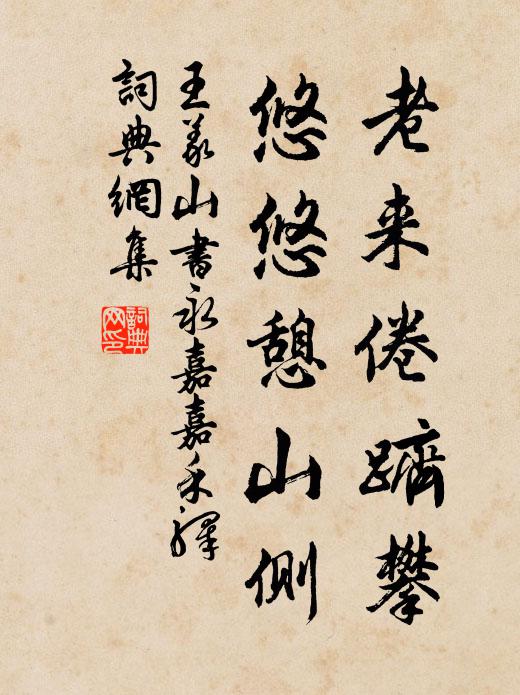 老来倦躋攀
悠悠憩山側
王义山書永嘉嘉禾驛
詞典網集
詞典网印